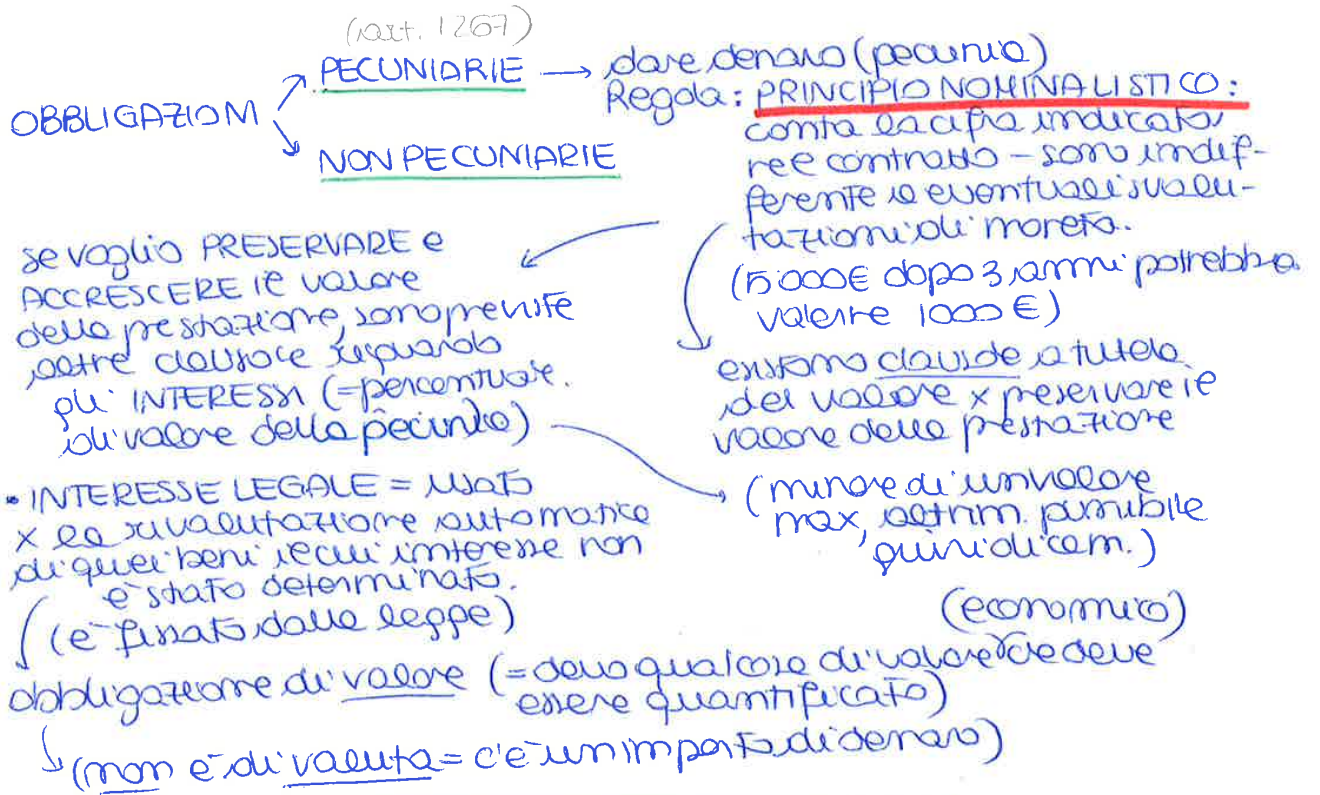 (art. 1267)
OBBLIGAZIONI
PECUNIARIE → dare denaro (pecunia)
NON PECUNIARIE
Regola: PRINCIPIO NOMINALISTICO:
conta la cifra indicata
nel contratto - sono indif-
ferente a eventuali svalu-
tazioni di moneta.
(5000€ dopo 3 anni potrebbe
valere 1000 €)
esistono clausole a tutela
del valore x preservare il
valore della prestazione
se voglio PRESERVARE e
ACCRESCERE il valore
della prestazione, sono previste
altre clausole riguardo
gli INTERESSI (= percentuale
di valore della pecunia)
(minore di un valore
max, altrim. punibile
)
• INTERESSE LEGALE = usato
x la rivalutazione automatica
di quei beni il cui interesse non
è stato determinato.
(è fissato dalla legge)
(economico)
obbligazione di valore (= devo qualcosa di valore che deve
essere quantificato)
(non è di valuta = c'è un importo di denaro)